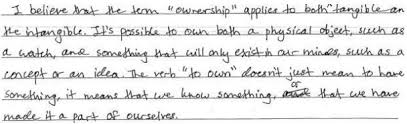 I believe that the term "ownership" applies to both tangible an
the intangible. It's possible to own both a physical object, such as
a watch, and something that will only exist in our minds, such as a
concept or an idea. The verb "to own" doesn't just mean to have
something, it means that we know something, or that we have
made it a part of ourselves.